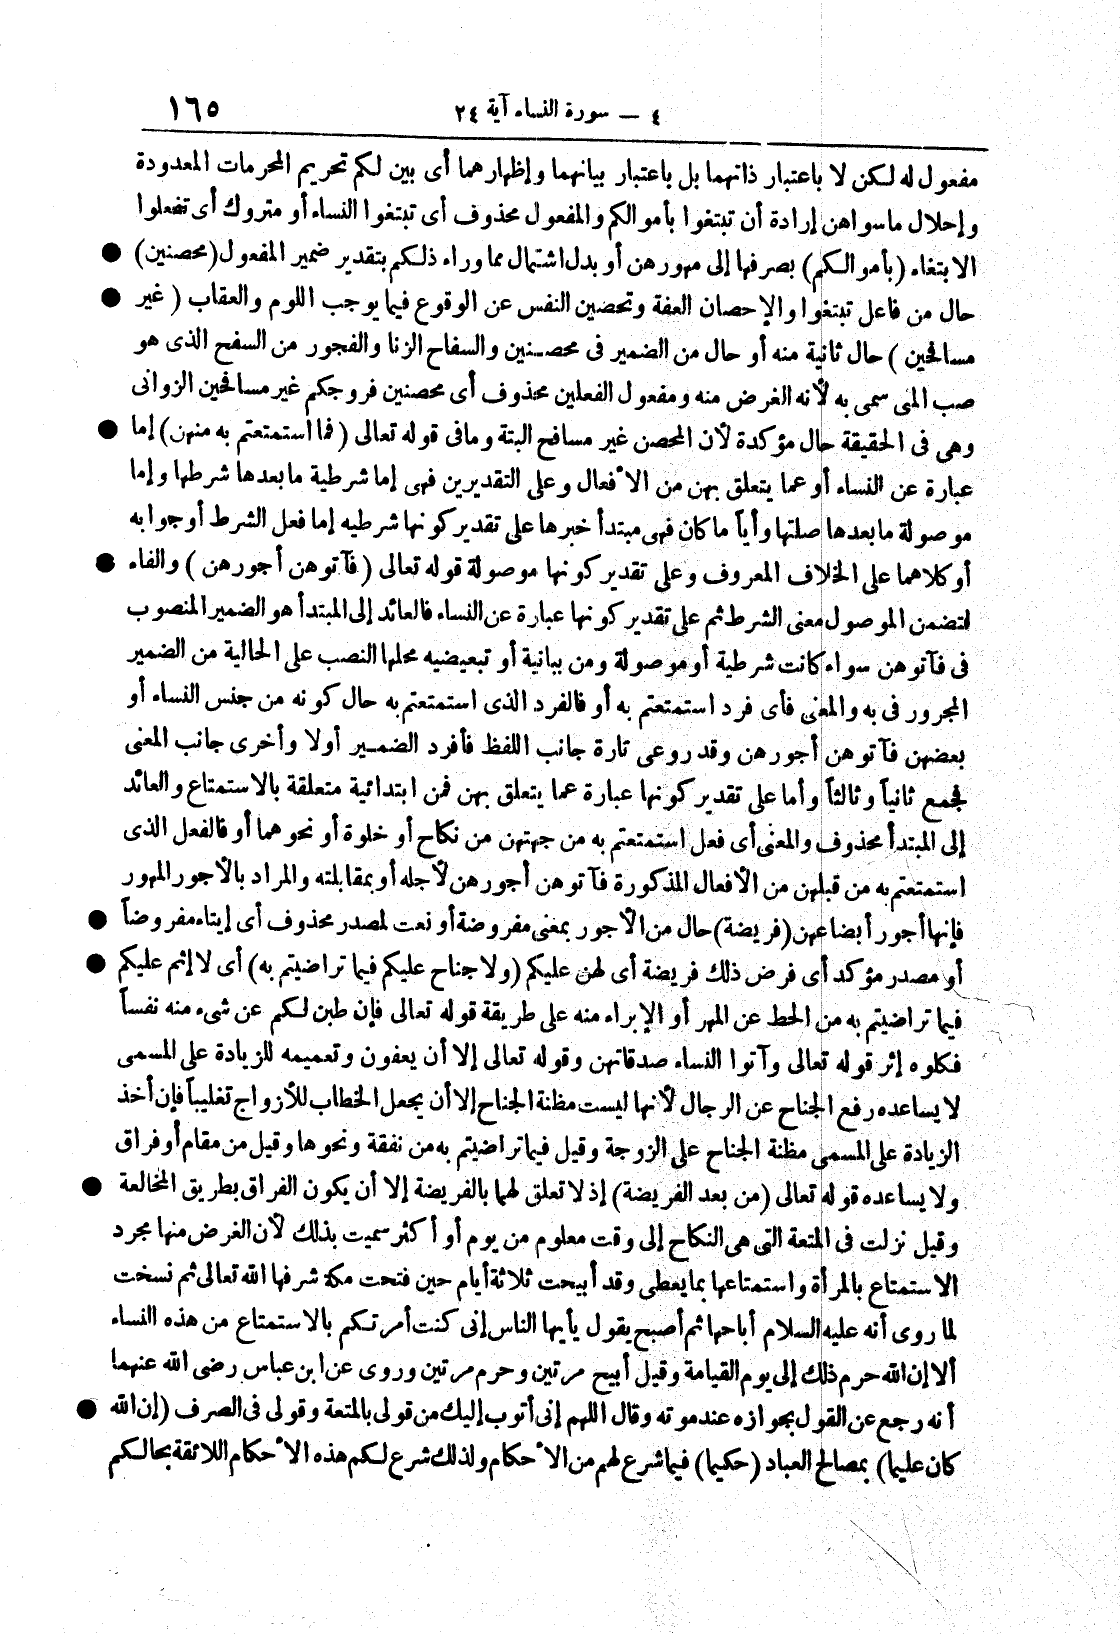 ٤ – سورة النساء آية ٢٤ ١٦٥
مفعول له لكن لا باعتبار ذاتهما بل باعتبار بيانهما وإظهارهما أى بين لكم تحريم المحرمات المعدودة
وإحلال ماسواهن إرادة أن تبتغوا بأموالكم والمفعول محذوف أى تبتغوا النساء أو متروك أى تفعلوا
الابتغاء (بأموالكم) بصرفها إلى مهورهن أو بدل اشتمال مما وراء ذلكم بتقدير ضمير المفعول (محصنين) ●
حال من فاعل تبتغوا والإحصان العفة وتحصين النفس عن الوقوع فيما يوجب اللوم والعقاب ( غير ●
مسافحين ) حال ثانية منه أو حال من الضمير فى محصنين والسفاح الزنا والفجور من السفح الذى هو
صب المنى سمى به لأنه الغرض منه ومفعول الفعلين محذوف أى محصنين فروجكم غير مسافحين الزوانى
وهى فى الحقيقة حال مؤكدة لأن المحصن غير مسافح البتة وما فى قوله تعالى (فما استمتعتم به منهن) إما ●
عبارة عن النساء أو عما يتعلق بهن من الأفعال وعلى التقديرين فهى إما شرطية مابعدها شرطها وإما
موصولة مابعدها صلتها وأياً ما كان فهى مبتدأ خبرها على تقدير كونها شرطيه إما فعل الشرط أوجوابه
أو كلاهما على الخلاف المعروف وعلى تقدير كونها موصولة قوله تعالى (فآتوهن أجورهن) والفاء ●
لتضمن الموصول معنى الشرط ثم على تقدير كونها عبارة عن النساء فالعائد إلى المبتدأ هو الضمير المنصوب
فى فآتوهن سواء كانت شرطية أو موصولة ومن بيانية أو تبعيضيه محلها النصب على الحالية من الضمير
المجرور فى به والمعنى فأى فرد استمتعتم به أو فالفرد الذى استمتعتم به حال كونه من جنس النساء أو
بعضهن فآتوهن أجورهن وقد روعى تارة جانب اللفظ فأفرد الضمير أولا وأخرى جانب المعنى
فجمع ثانياً وثالثاً وأما على تقدير كونها عبارة عما يتعلق بهن فمن ابتدائية متعلقة بالاستمتاع والعائد
إلى المبتدأ محذوف والمعنى أى فعل استمتعتم به من جهتهن من نكاح أو خلوة أو نحوهما أو فالفعل الذى
استمتعتم به من قبلهن من الأفعال المذكورة فآتوهن أجورهن لأجله أو بمقابلته والمراد بالأجور المهور
فإنها أجور أبضاعهن (فريضة) حال من الأجور بمعنى مفروضة أو نعت لمصدر محذوف أى إيتاء مفروضاً ●
أو مصدر مؤكد أى فرض ذلك فريضة أى لهن عليكم (ولا جناح عليكم فيما تراضيتم به) أى لا إثم عليكم ●
فيما تراضيتم به من الحط عن المهر أو الإبراء منه على طريقة قوله تعالى فإن طبن لكم عن شىء منه نفساً
فكلوه إثر قوله تعالى وآتوا النساء صدقاتهن وقوله تعالى إلا أن يعفون وتعميمه للزيادة على المسمى
لا يساعده رفع الجناح عن الرجال لأنها ليست مظنة الجناح إلا أن يجعل الخطاب للأزواج تغليباً فإن أخذ
الزيادة على المسمى مظنة الجناح على الزوجة وقيل فيما تراضيتم به من نفقة ونحوها وقيل من مقام أو فراق
ولا يساعده قوله تعالى (من بعد الفريضة) إذ لا تعلق لهما بالفريضة إلا أن يكون الفراق بطريق المخالعة ●
وقيل نزلت فى المتعة التى هى النكاح إلى وقت معلوم من يوم أو أكثر سميت بذلك لأن الغرض منها مجرد
الاستمتاع بالمرأة واستمتاعها بما يعطى وقد أبيحت ثلاثة أيام حين فتحت مكة شرفها الله تعالى ثم نسخت
لما روى أنه عليه السلام أباحها ثم أصبح يقول يأيها الناس إنى كنت أمرتكم بالاستمتاع من هذه النساء
ألا إن الله حرم ذلك إلى يوم القيامة وقيل أبيح مرتين وحرم مرتين وروى عن ابن عباس رضى الله عنهما
أنه رجع عن القول بجوازه عند موته وقال اللهم إنى أتوب إليك من قولى بالمتعة وقولى فى الصرف (إن الله ●
كان عليما) بمصالح العباد (حكيما) فيما شرع لهم من الأحكام ولذلك شرع لكم هذه الأحكام اللائقة بحالكم